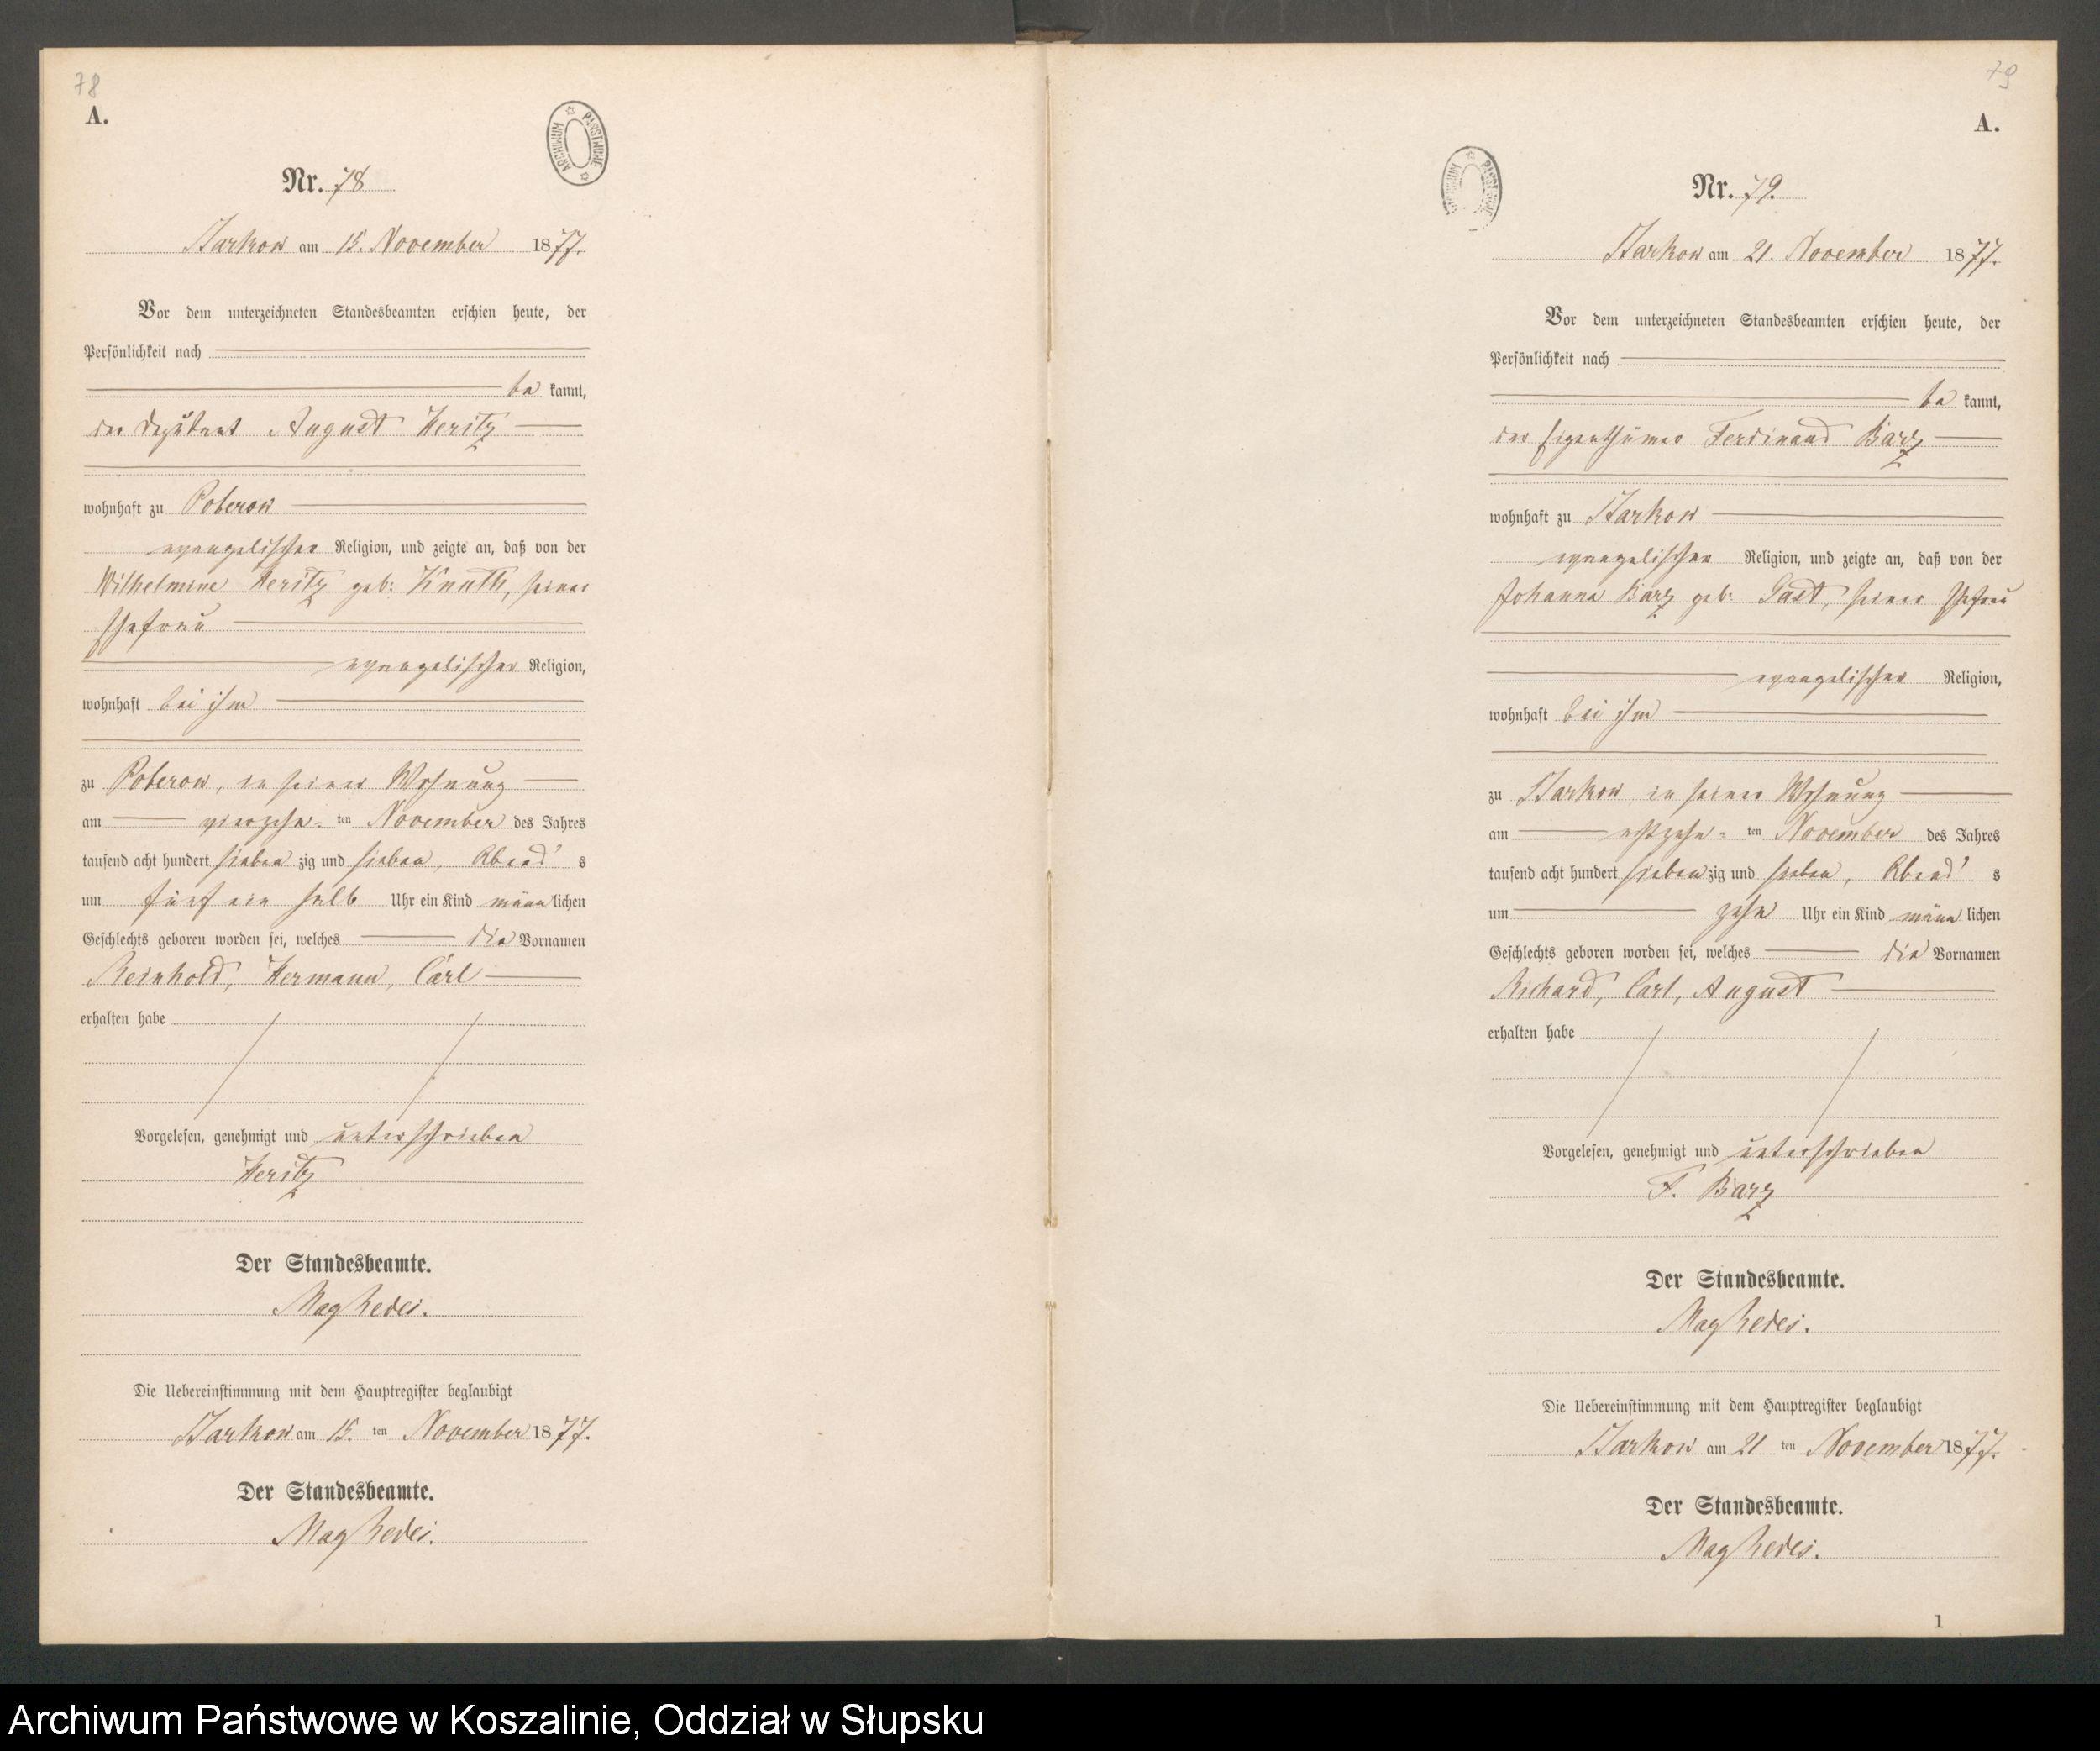 78
A.
ARCHIWUM PAŃSTWOWE
Nr. 78
Starkow am 15. November 1877.
Vor dem unterzeichneten Standesbeamten erschien heute, der
Persönlichkeit nach
be kannt,
der Deputant August Heritz
wohnhaft zu Poberow
evangelischer Religion, und zeigte an, daß von der
Wilhelmine Heritz geb: Knuth, seiner
Ehefrau
evangelischer Religion,
wohnhaft bei ihm
zu Poberow, in seiner Wohnung
am vierzehn-ten November des Jahres
tausend acht hundert sieben zig und sieben, Abend's
um fünf ein halb Uhr ein Kind männlichen
Geschlechts geboren worden sei, welches die Vornamen
Reinhold, Hermann, Carl
erhalten habe
Vorgelesen, genehmigt und unterschrieben
Heritz
Der Standesbeamte.
Der Standesbeamte.
Die Uebereinstimmung mit dem Hauptregister beglaubigt
Starkow am 15. ten November 1877.
79
A.
Nr. 79.
Starkow am 21. November 1877.
Vor dem unterzeichneten Standesbeamten erschien heute, der
Persönlichkeit nach
be kannt,
der Eigenthümer Ferdinand Barz
wohnhaft zu Starkow
evangelischer Religion, und zeigte an, daß von der
Johanna Barz geb: Gast, seiner Ehefrau
evangelischer Religion,
wohnhaft bei ihm
zu Starkow in seiner Wohnung
am achtzehn-ten November des Jahres
tausend acht hundert siebenzig und sieben, Abend's
um zehn Uhr ein Kind männlichen
Geschlechts geboren worden sei, welches die Vornamen
Richard, Carl, August
erhalten habe
Vorgelesen, genehmigt und unterschrieben
F. Barz
Der Standesbeamte.
Die Uebereinstimmung mit dem Hauptregister beglaubigt
Starkow am 21 ten November 1877.
Der Standesbeamte.
1
Archiwum Państwowe w Koszalinie, Oddział w Słupsku